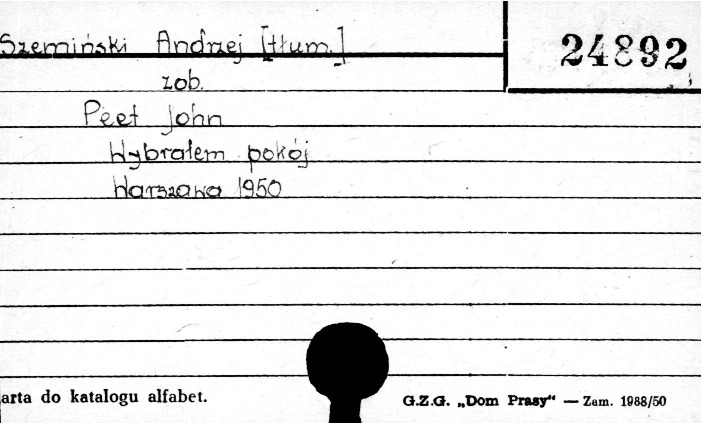 Szemiński Andrzej [tłum.]
24892
zob.
Peet John
Wybrałem pokój
Warszawa 1950
arta do katalogu alfabet.
G.Z.G. „Dom Prasy“ — Zam. 1988/50